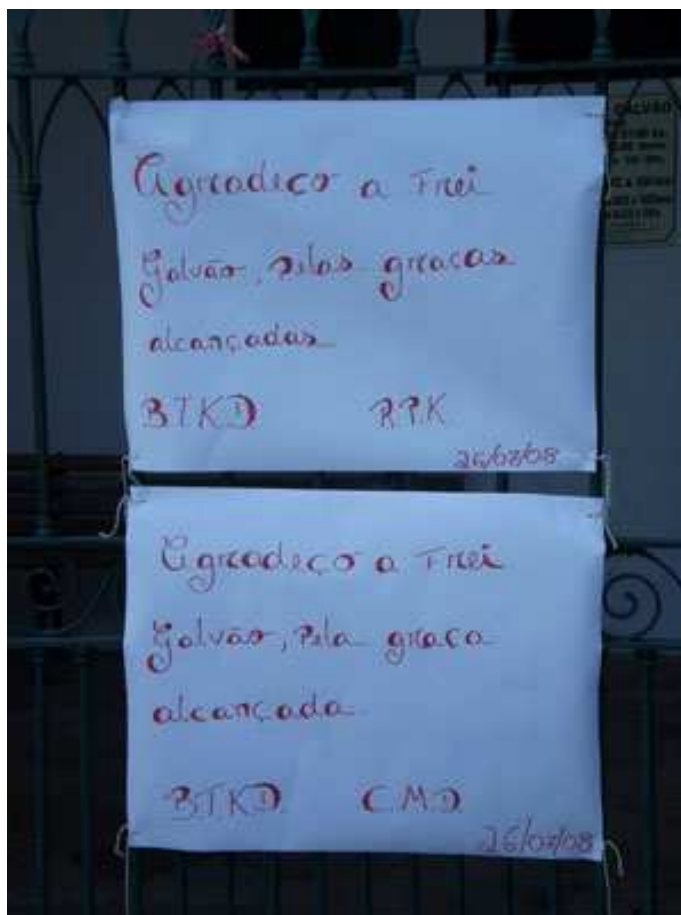 Agradeço a Frei
Galvão, pelas graças
alcançadas
BTKD R.P.K
26/07/08
Agradeço a Frei
Galvão, pela graça
alcançada
BTKD C.M.D
26/07/08
GALVÃO